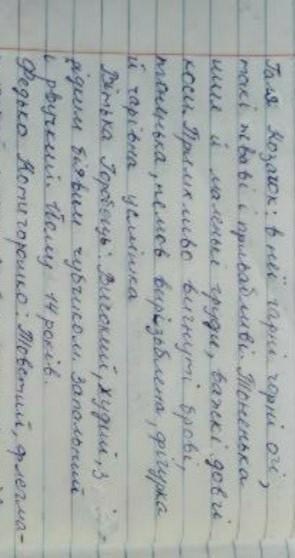 Галя Козачок: в неї гарні чорні очі,
такі жваві і привабливі. Тоненька
шия й маленькі груди, важкі довгі
коси. Примхливо вигнуті брови,
тоненька, немов вирізьблена, фігурка
й чарівна усмішка
Вітька Горобець: Високий, худий, з
рідким білявим чубчиком. Запальний
і рвучкий. Йому 14 років.
Федько Котигорошко. Товстий, флегма-